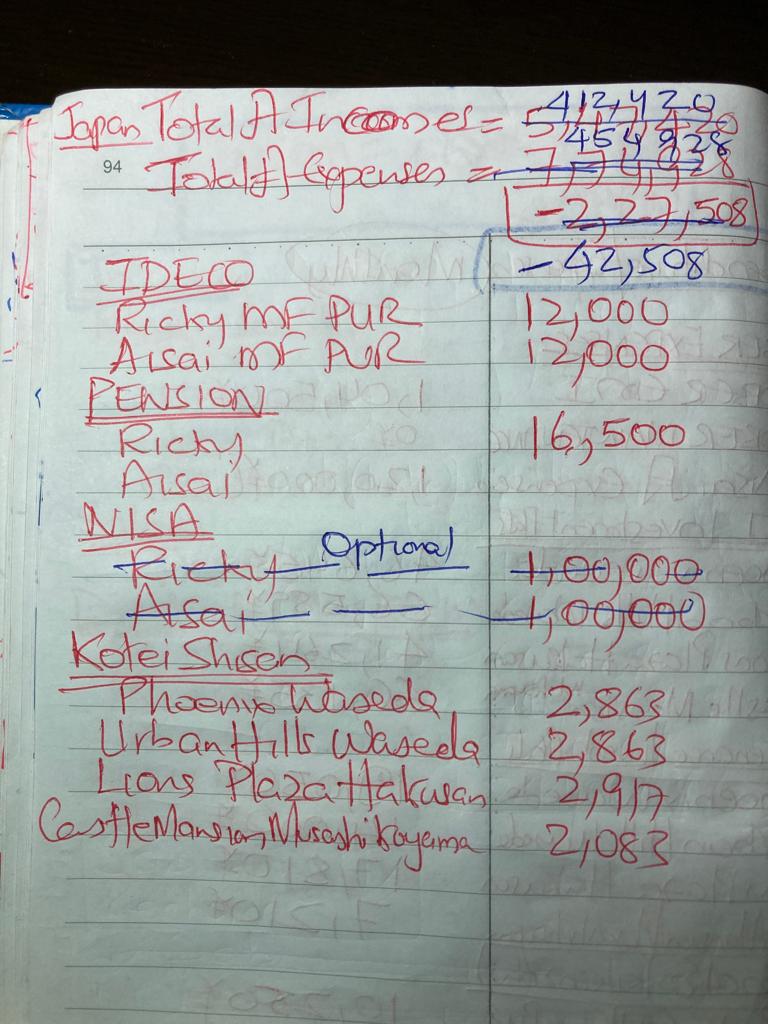 412,420
Japan Total A Incomes =
454,928
94 Total A Expenses =
-2,27,508
-42,508
IDECO
Ricky MF PUR 12,000
Aisai MF PUR 12,000
PENSION
Ricky 16,500
Aisai
NISA
Optional
Ricky 1,00,000
Aisai 1,00,000
Kotei Shisen
Phoenix Waseda 2,863
Urban Hills Waseda 2,863
Lions Plaza Hakusan 2,917
Castle Mansion Musashi Koyama 2,083